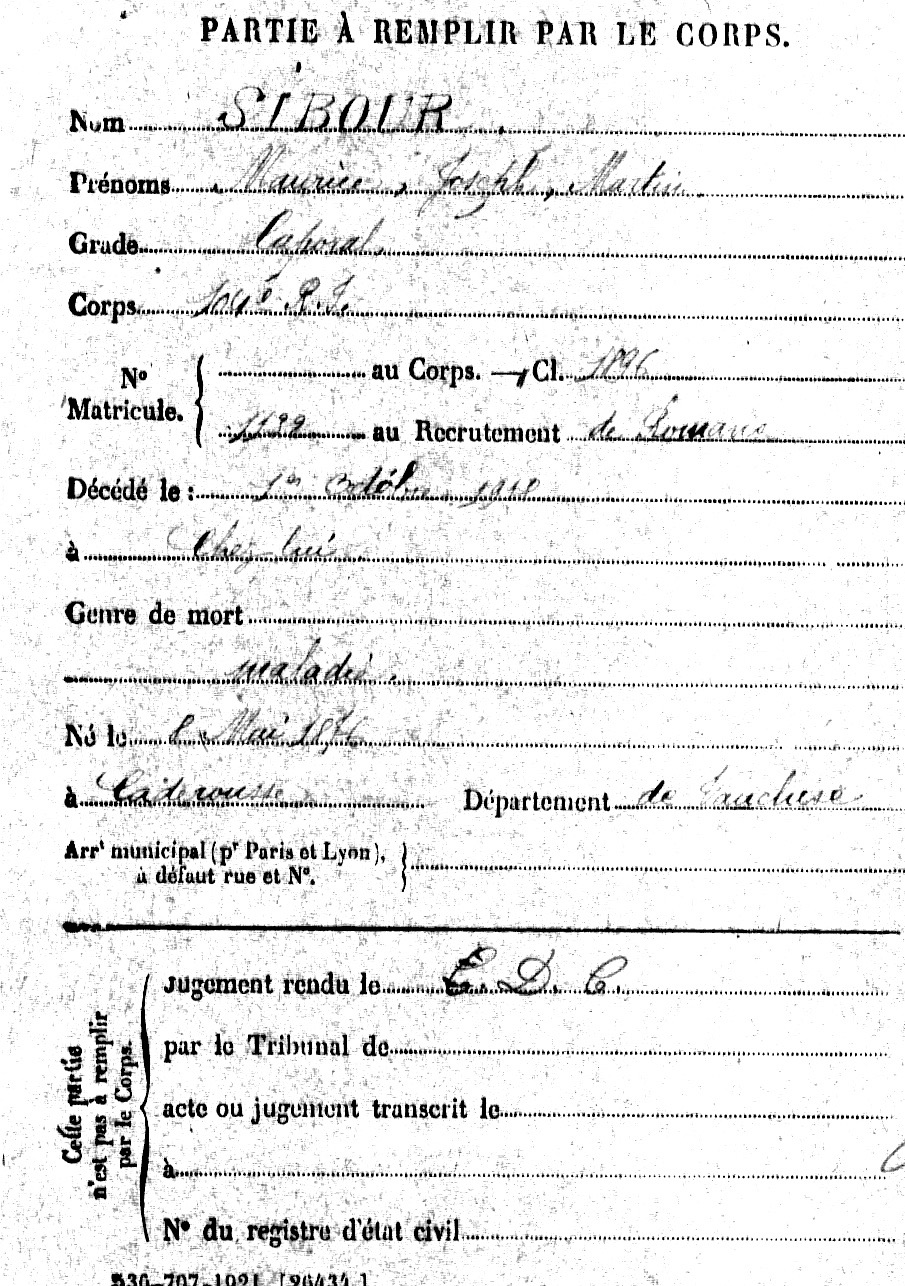 PARTIE À REMPLIR PAR LE CORPS.
Nom SIBOUR
Prénoms Maurice, Joseph, Martin
Grade Caporal
Corps 104e R.I.
No Matricule. au Corps. — Cl. 1896
1139 au Recrutement de Romans
Décédé le : 1er Octobre 1918
à Chez lui
Genre de mort
maladie.
Né le 8 Mai 1876
à Caderousse Département de Vaucluse
Arrt municipal (pr Paris et Lyon), à défaut rue et No.
Cette partie n'est pas à remplir par le Corps.
Jugement rendu le E. D. C.
par le Tribunal de
acte ou jugement transcrit le
à
No du registre d'état civil
536-707-1921. [26434.]